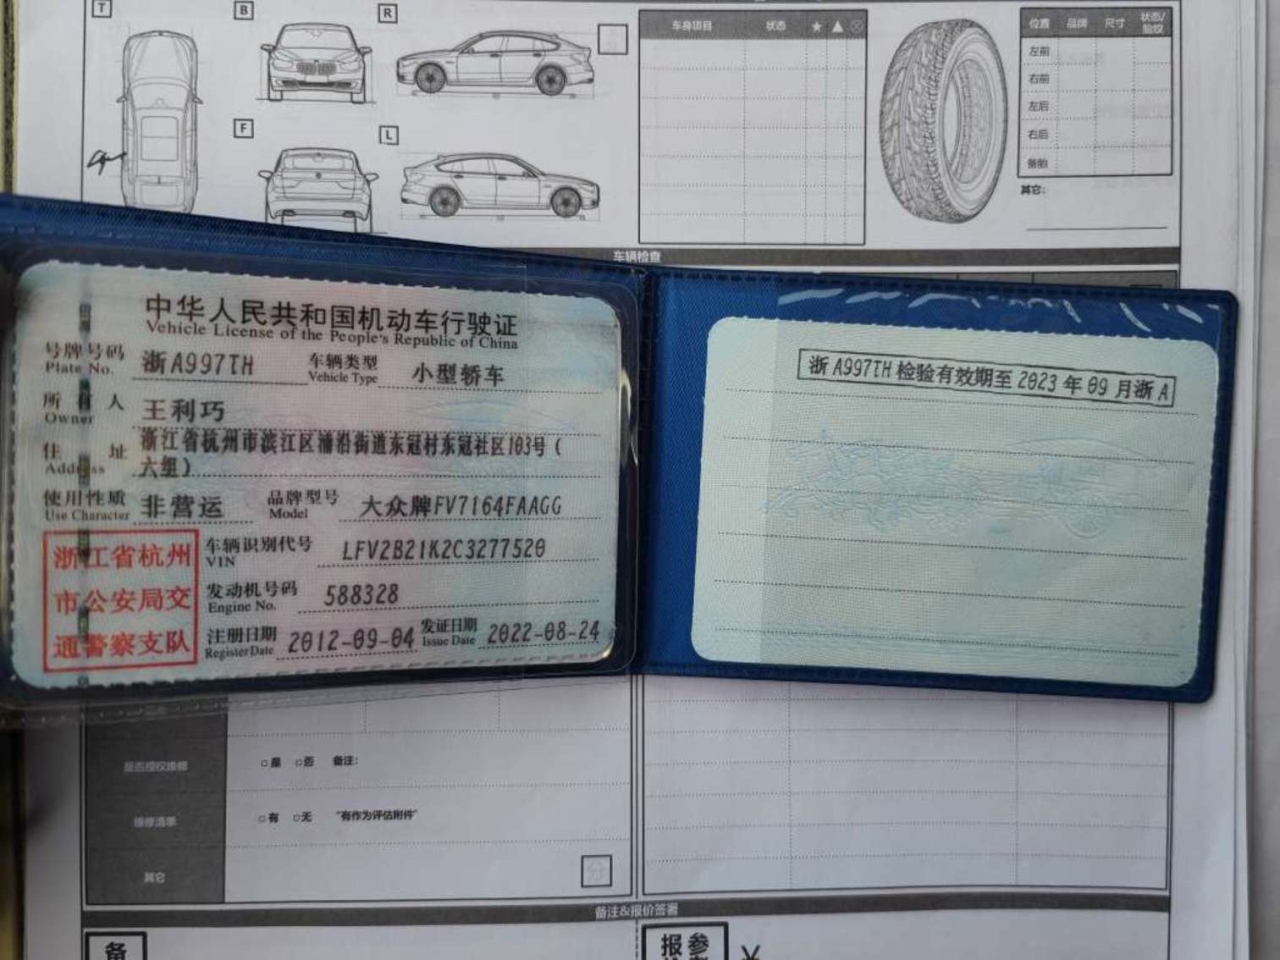 T
B
R
F
L
车身项目 状态 ★ ▲ ⊗
位置 品牌 尺寸 状态/胎纹
左前
右前
左后
右后
备胎
其它:
车辆检查
中华人民共和国机动车行驶证
Vehicle License of the People's Republic of China
号牌号码 浙A997TH 车辆类型 小型轿车
Plate No. Vehicle Type
所有人 王利巧
Owner
住址 浙江省杭州市滨江区浦沿街道东冠村东冠社区103号(
Address 六组)
使用性质 非营运 品牌型号 大众牌FV7164FAAGG
Use Character Model
浙江省杭州
市公安局交
通警察支队
车辆识别代号 LFV2B21K2C3277520
VIN
发动机号码 588328
Engine No.
注册日期 2012-09-04 发证日期 2022-08-24
Register Date Issue Date
浙A997TH检验有效期至2023年09月浙A
是否授权维修 □是 □否 备注:
维修清单 □有 □无 "有作为评估附件"
其它
分
备注&报价签署
备
报参
¥